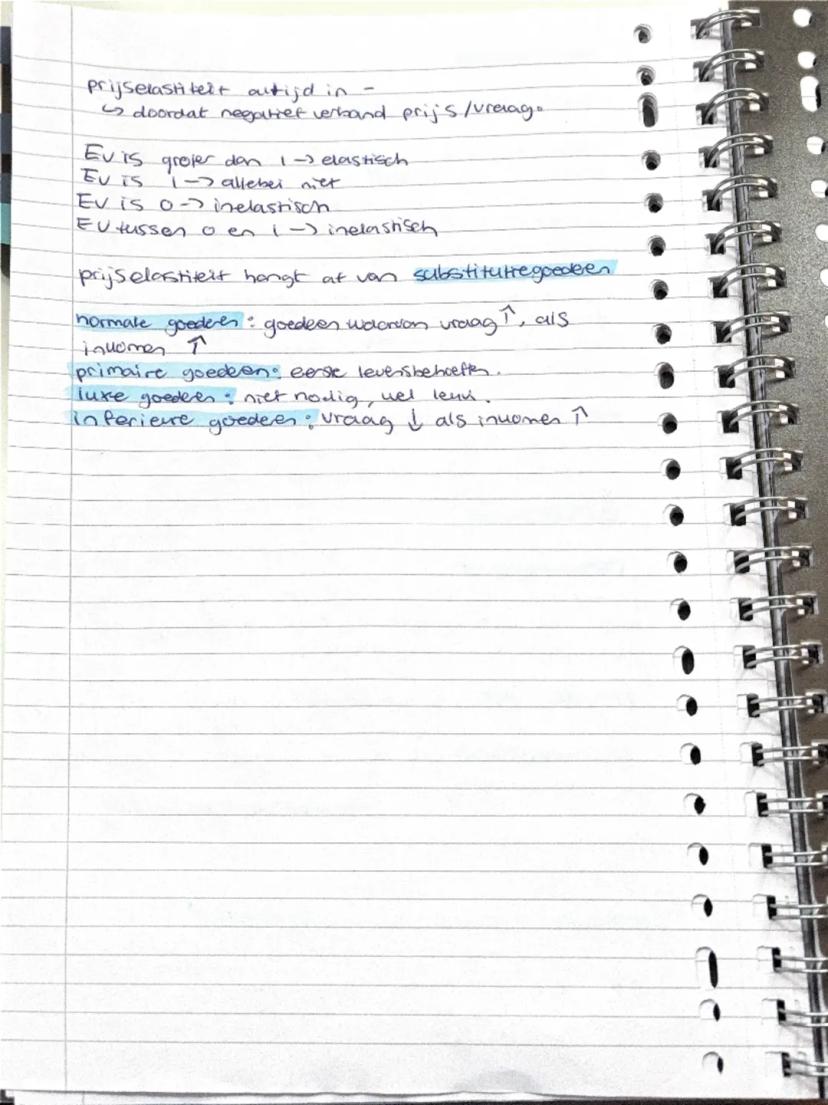 prijselastiteit altijd in -
↳ doordat negatief verband prijs/vraag.
Ev is groter dan 1 → elastisch
Ev is 1 → allebei niet
Ev is 0 → inelastisch
Ev tussen 0 en 1 → inelastisch
prijselastiteit hangt af van substitutiegoederen
normale goederen: goederen waarvan vraag ↑, als
inkomen ↑
primaire goederen: eerste levensbehoeften.
luxe goederen: niet nodig, wel leuk.
inferieure goederen: vraag ↓ als inkomen ↑